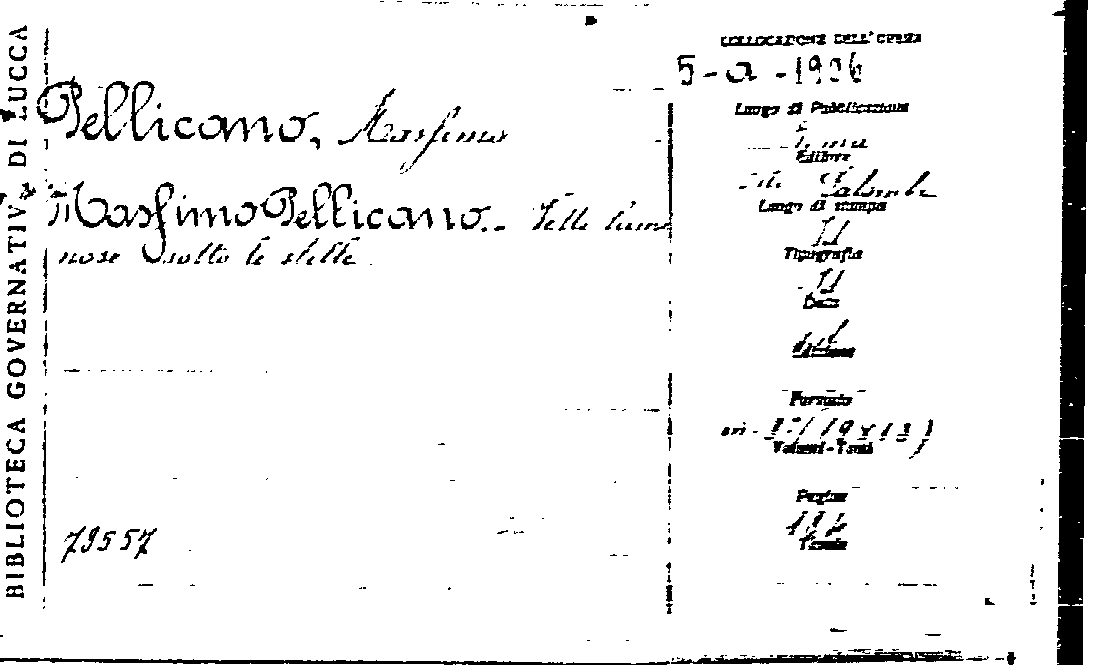 BIBLIOTECA GOVERNATIVA DI LUCCA
Pellicano, Massimo
Massimo Pellicano.. Vette lumi
nose sotto le stelle
79557
COLLOCAZIONE DELL'OPERA
5-a-1936
Luogo di Pubblicazione
Roma
Editore
Palombi
Luogo di stampa
Id
Tipografia
Id
Data
Formato
in - 8°(19x13)
Volumi-Tomi
Pagine
Tavole